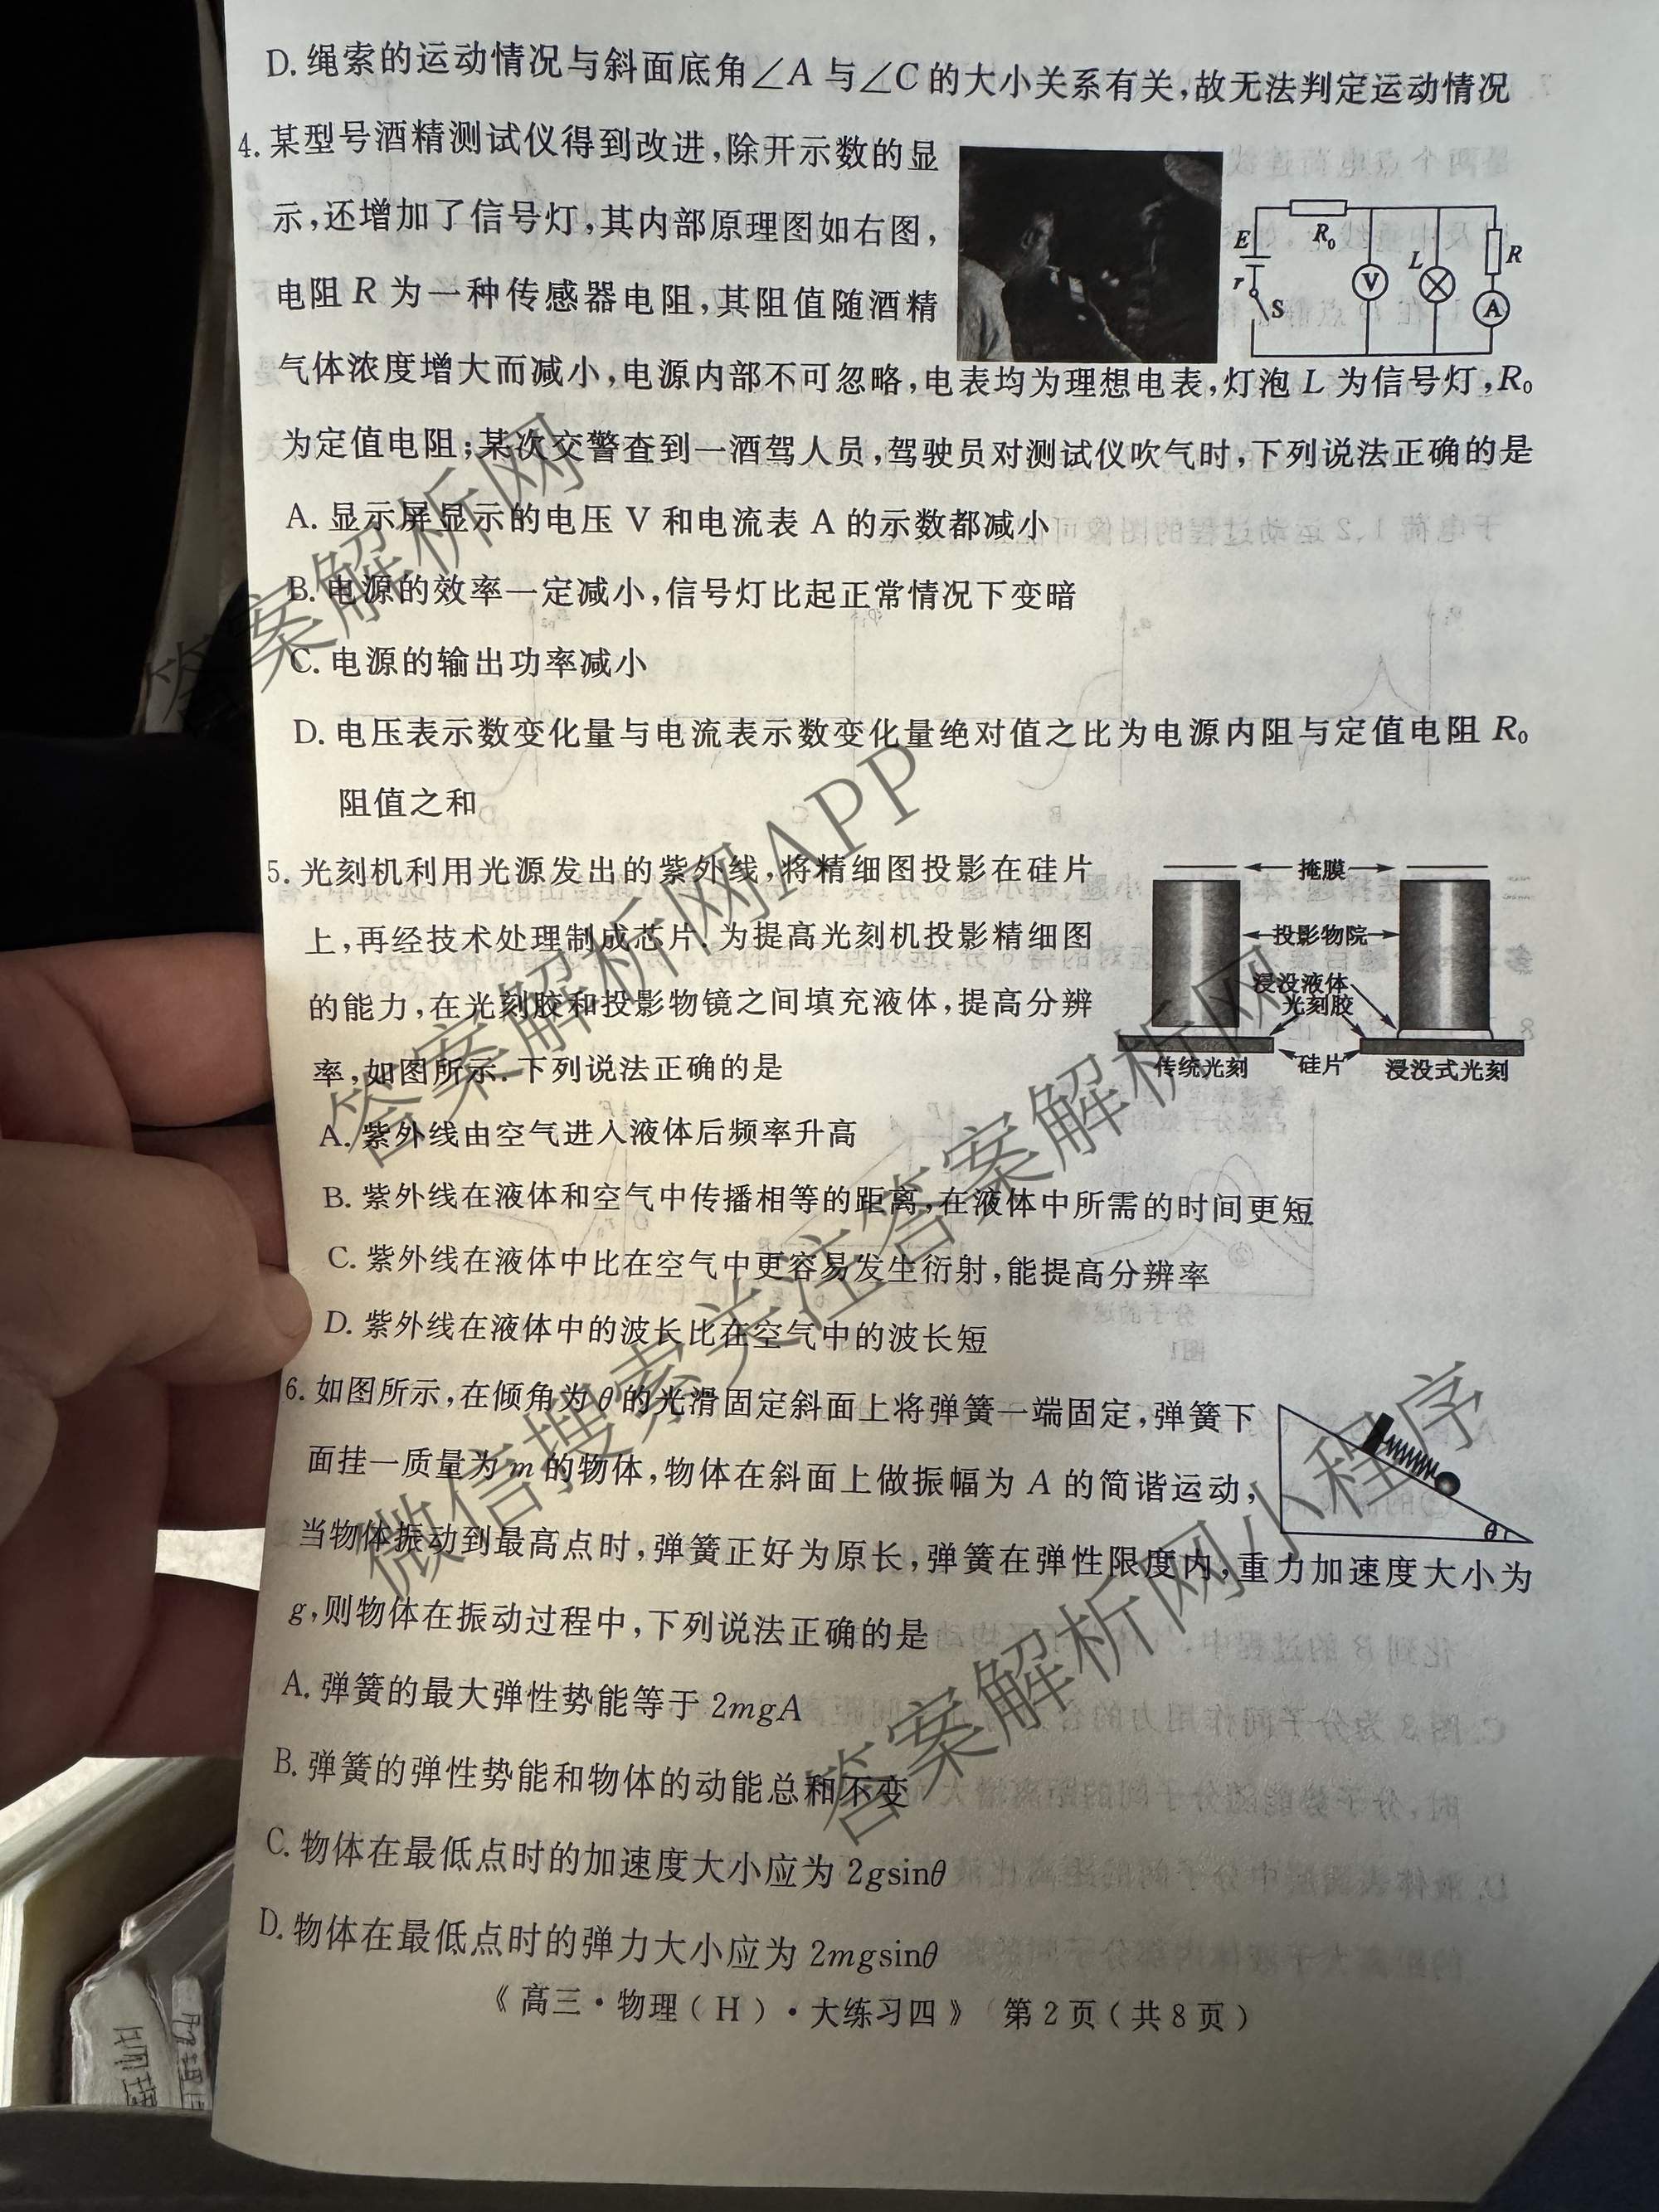 D. 绳索的运动情况与斜面底角∠A 与∠C的大小关系有关,故无法判定运动情况
4. 某型号酒精测试仪得到改进,除开示数的显
示,还增加了信号灯,其内部原理图如右图,
电阻 R 为一种传感器电阻,其阻值随酒精
气体浓度增大而减小,电源内部不可忽略,电表均为理想电表,灯泡 L 为信号灯,R₀
为定值电阻;某次交警查到一酒驾人员,驾驶员对测试仪吹气时,下列说法正确的是
A. 显示屏显示的电压 V 和电流表 A 的示数都减小
B. 电源的效率一定减小,信号灯比起正常情况下变暗
C. 电源的输出功率减小
D. 电压表示数变化量与电流表示数变化量绝对值之比为电源内阻与定值电阻 R₀
阻值之和
E
r
S
R₀
V
L
R
A
5. 光刻机利用光源发出的紫外线,将精细图投影在硅片
上,再经技术处理制成芯片. 为提高光刻机投影精细图
的能力,在光刻胶和投影物镜之间填充液体,提高分辨
率,如图所示. 下列说法正确的是
掩膜
投影物院
浸没液体
光刻胶
传统光刻
硅片
浸没式光刻
A. 紫外线由空气进入液体后频率升高
B. 紫外线在液体和空气中传播相等的距离,在液体中所需的时间更短
C. 紫外线在液体中比在空气中更容易发生衍射,能提高分辨率
D. 紫外线在液体中的波长比在空气中的波长短
6. 如图所示,在倾角为 θ 的光滑固定斜面上将弹簧一端固定,弹簧下
面挂一质量为 m 的物体,物体在斜面上做振幅为 A 的简谐运动,
当物体振动到最高点时,弹簧正好为原长,弹簧在弹性限度内,重力加速度大小为
g,则物体在振动过程中,下列说法正确的是
θ
A. 弹簧的最大弹性势能等于 2mgA
B. 弹簧的弹性势能和物体的动能总和不变
C. 物体在最低点时的加速度大小应为 2gsinθ
D. 物体在最低点时的弹力大小应为 2mgsinθ
《高三·物理(H)·大练习四》 第2页(共8页)
答案解析网
答案解析网APP
微信搜索关注答案解析网
答案解析网小程序